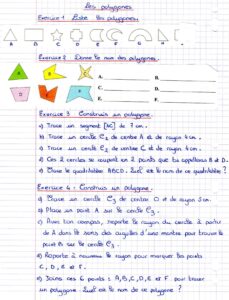 Les polygones
Exercice 1 Liste les polygones.
A B C D E F G H I
Exercice 2 Donne le nom des polygones.
A. B.
C. D.
E. F.
Exercice 3 Construis un polygone.
a) Trace un segment [AC] de 7 cm.
b) Trace un cercle C1 de centre A et de rayon 4 cm.
c) Trace un cercle C2 de centre C et de rayon 4 cm.
d) Ces 2 cercles se coupent en 2 points que tu appelleras B et D.
e) Trace le quadrilatère ABCD. Quel est le nom de ce quadrilatère ?
Exercice 4 : Construis un polygone.
a) Trace un cercle C3 de centre O et de rayon 5 cm.
b) Place un point A sur le cercle C3.
c) Avec ton compas, reporte le rayon du cercle à partir
de A dans le sens des aiguilles d'une montre pour trouver le
point B sur le cercle C3.
d) Reporte à nouveau le rayon pour marquer les points
C, D, E et F.
e) Joins ces 6 points : A, B, C, D, E et F pour tracer
un polygone. Quel est le nom de ce polygone ?